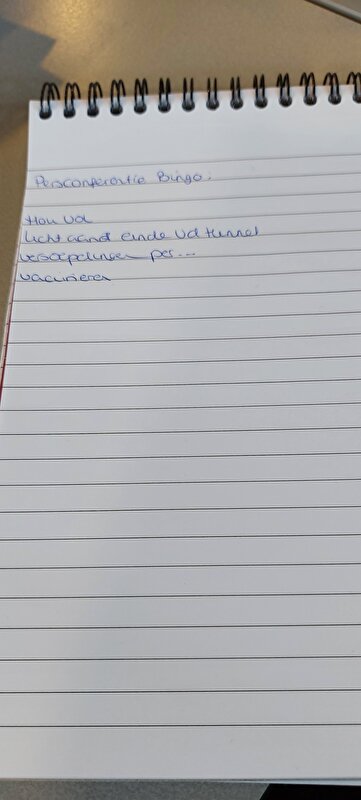 Persconferentie Bingo:
Hou vol
licht aand einde vd tunnel
versoepelingen per...
vaccineren